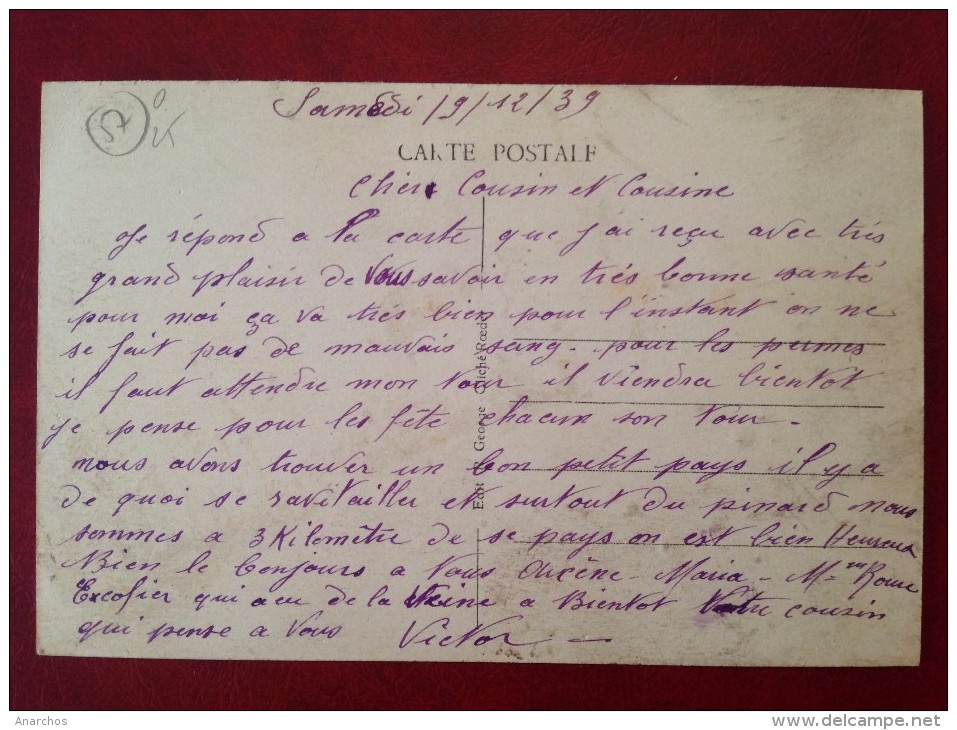 57
Samedi 19/12/39
CARTE POSTALE
Chèr Cousin et Cousine
Je répond a la carte que j'ai reçu avec très
grand plaisir de vous savoir en très bonne santé
pour moi ça va très bien pour l'instant on ne
se fait pas de mauvais sang. pour les permes
il faut attendre mon tour il viendra bientot
je pense pour les fête chacun son tour.
nous avons trouver un bon petit pays il y a
de quoi se ravitailler et surtout du pinard nous
sommes a 3 Kilomètre de se pays on est bien Heureux
Bien le bonjours a vous Maria - Mme
Excofier qui a eu de la a Bientot Votre cousin
qui pense a vous Victor
Edit George Cliché Rœder
Anarchos
www.delcampe.net